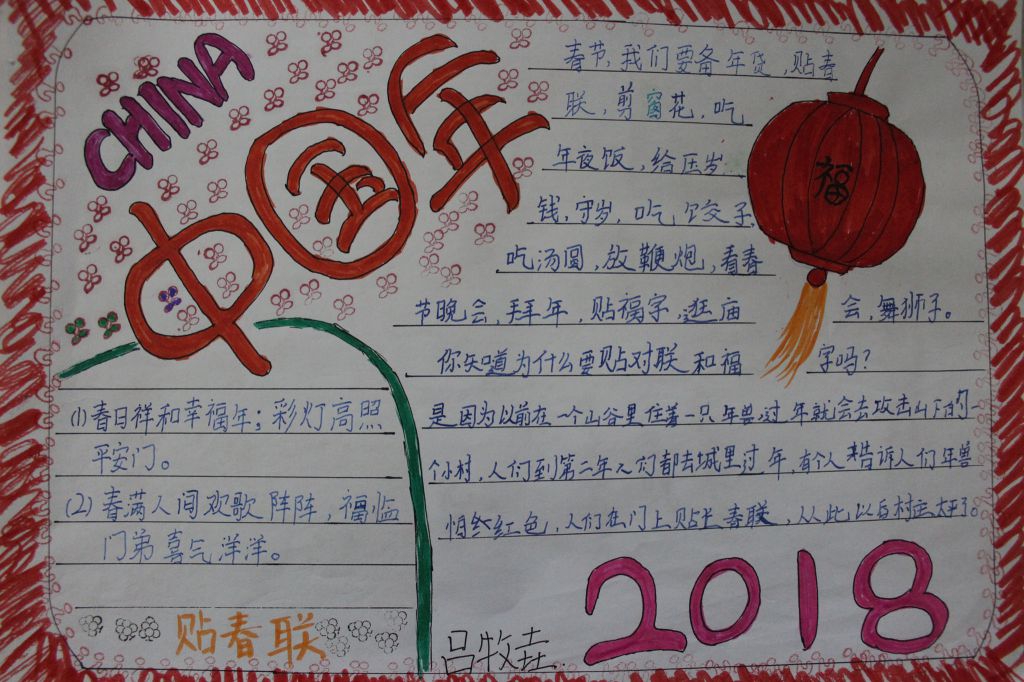 CHINA
中国年
春节,我们要备年货,贴春
联,剪窗花,吃
年夜饭,给压岁
钱,守岁,吃饺子,
吃汤圆,放鞭炮,看春
节晚会,拜年,贴福字,逛庙会,舞狮子。
你知道为什么要贴对联和福字吗?
是因为以前在一个山谷里住着一只年兽,过年就会去攻击山下的一
个小村,人们到第二年人们都去城里过年,有个人来告诉人们年兽
怕红色,人们在门上贴上春联,从此以后村庄太平了。
福
(1)春日祥和幸福年;彩灯高照
平安门。
(2)春满人间欢歌阵阵,福临
门弟喜气洋洋。
贴春联
吕牧垚
2018